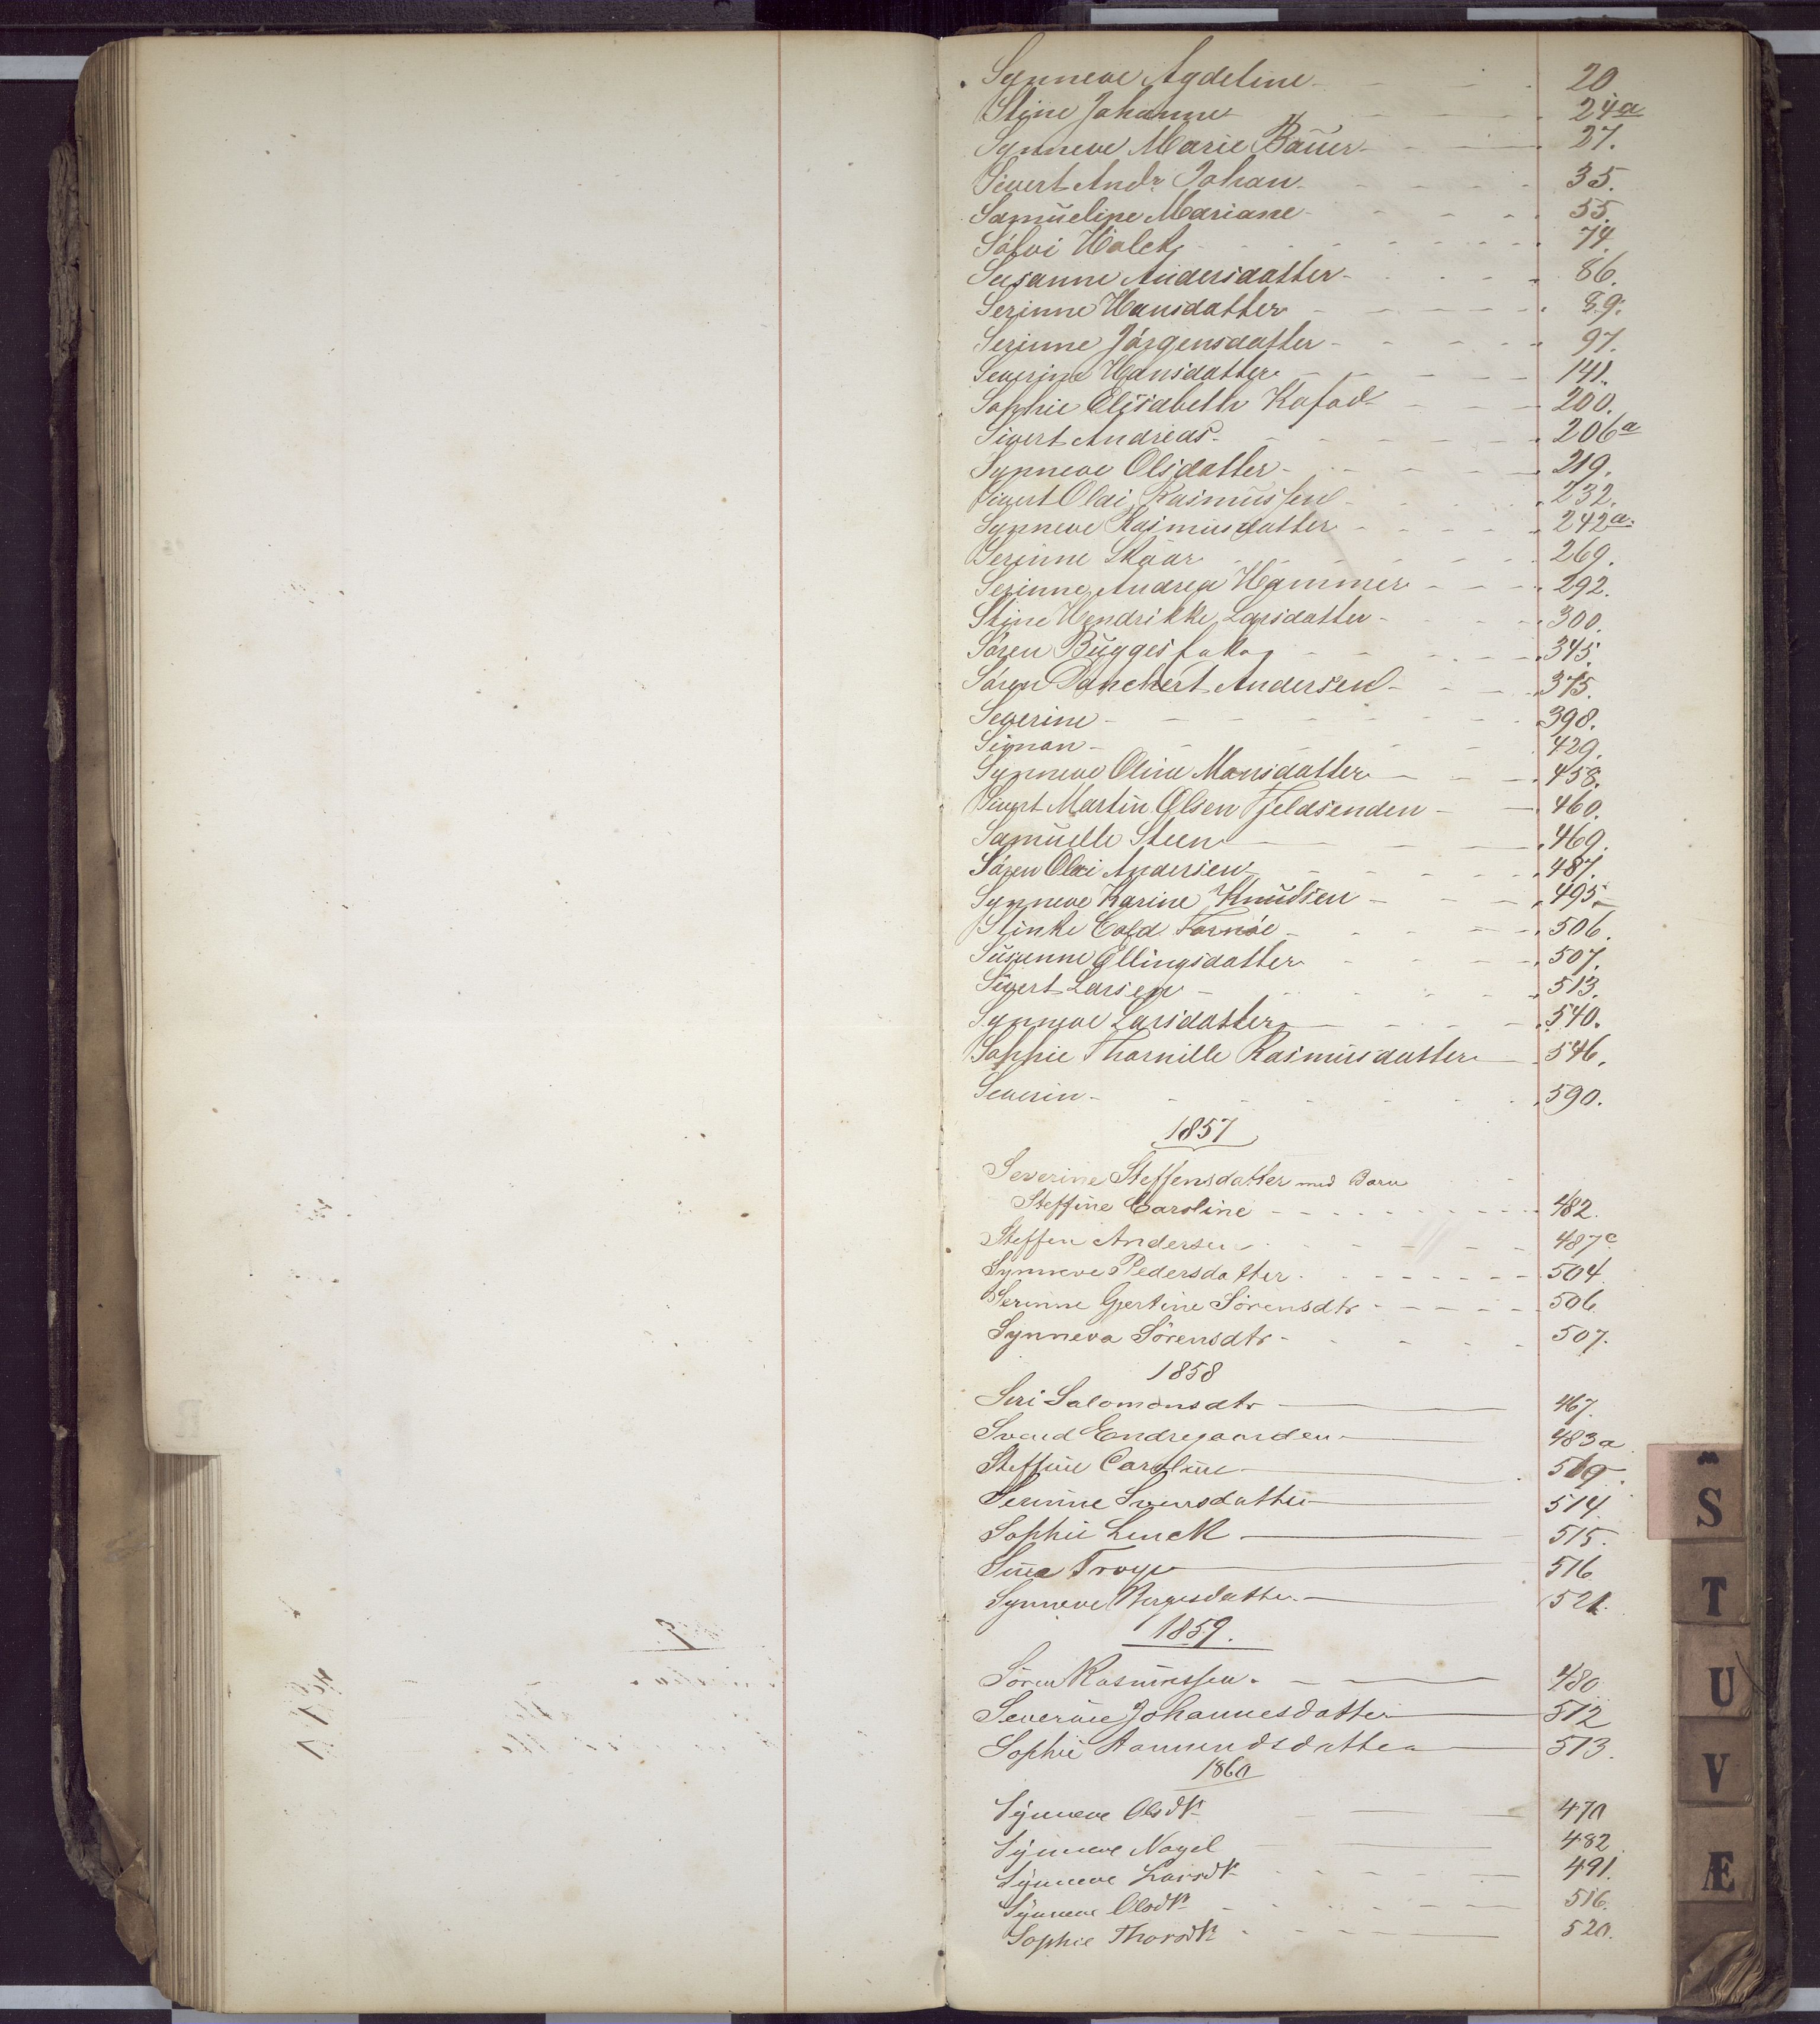 Synneve Agdeline 20
Stine Johanne 24a
Synneve Marie Baüer 27.
Sivert Andr. Johan 35.
Samüeline Mariane 55.
Sólvi 74.
Susanne Andersdatter 86.
Serinne Hansdatter 89.
Serinne Jórgensdatter 97.
Severine Hansdatter 141.
Sophie Elisabeth Kofod 200.
Sivert Andreas 206a
Synneve Olsdatter 219.
Sivert Olai Rasmussen 232.
Synneve Rasmusdatter 242a.
Serinne Skaar 269.
Serinne Andrea Hammer 292.
Stine Hendrikke Larsdatter 300.
Sóren Bügges 345.
Sóren Danchert Andersen 375.
Severine 398.
Signan 429.
Synneve Oline Monsdatter 458.
Sivert Martin Olsen Fjeldsenden 460.
Samuelle Steen 469.
Sóren Olai Andersen 487.
Synneve Karine Knudsen 495.
Stinke Cold Fornóe 506.
Susanne Ellingsdatter 507.
Sivert Larsen 513.
Synneve Larsdatter 540.
Sophie Thornille Rasmusdatter 546.
Severin 590.
1857
Severine Steffensdatter med Barn
Steffine Caroline 482.
Steffen Andersen 487c
Synneve Pedersdatter 504
Serinne Gjertine Sörensdtr 506
Synneva Sörensdtr 507.
1858
Siri Salomonsdtr 467.
Svend Endregaarden 483a
Steffine Caroline 509.
Serinne Svensdatter 514
Sophie Linck 515.
Sina Troye 516
Synneve 521.
1859.
Sören Rasmussen 480
Severine Johannesdatter 512
Sophie Aamundsdatter 513.
1860
Synneve Olsdtr 470
Synneve Nagel 482
Synneve Larsdtr 491.
Synneve Olsdtr 516.
Sophie Thorsdtr 520.
S
T
U
V
Æ